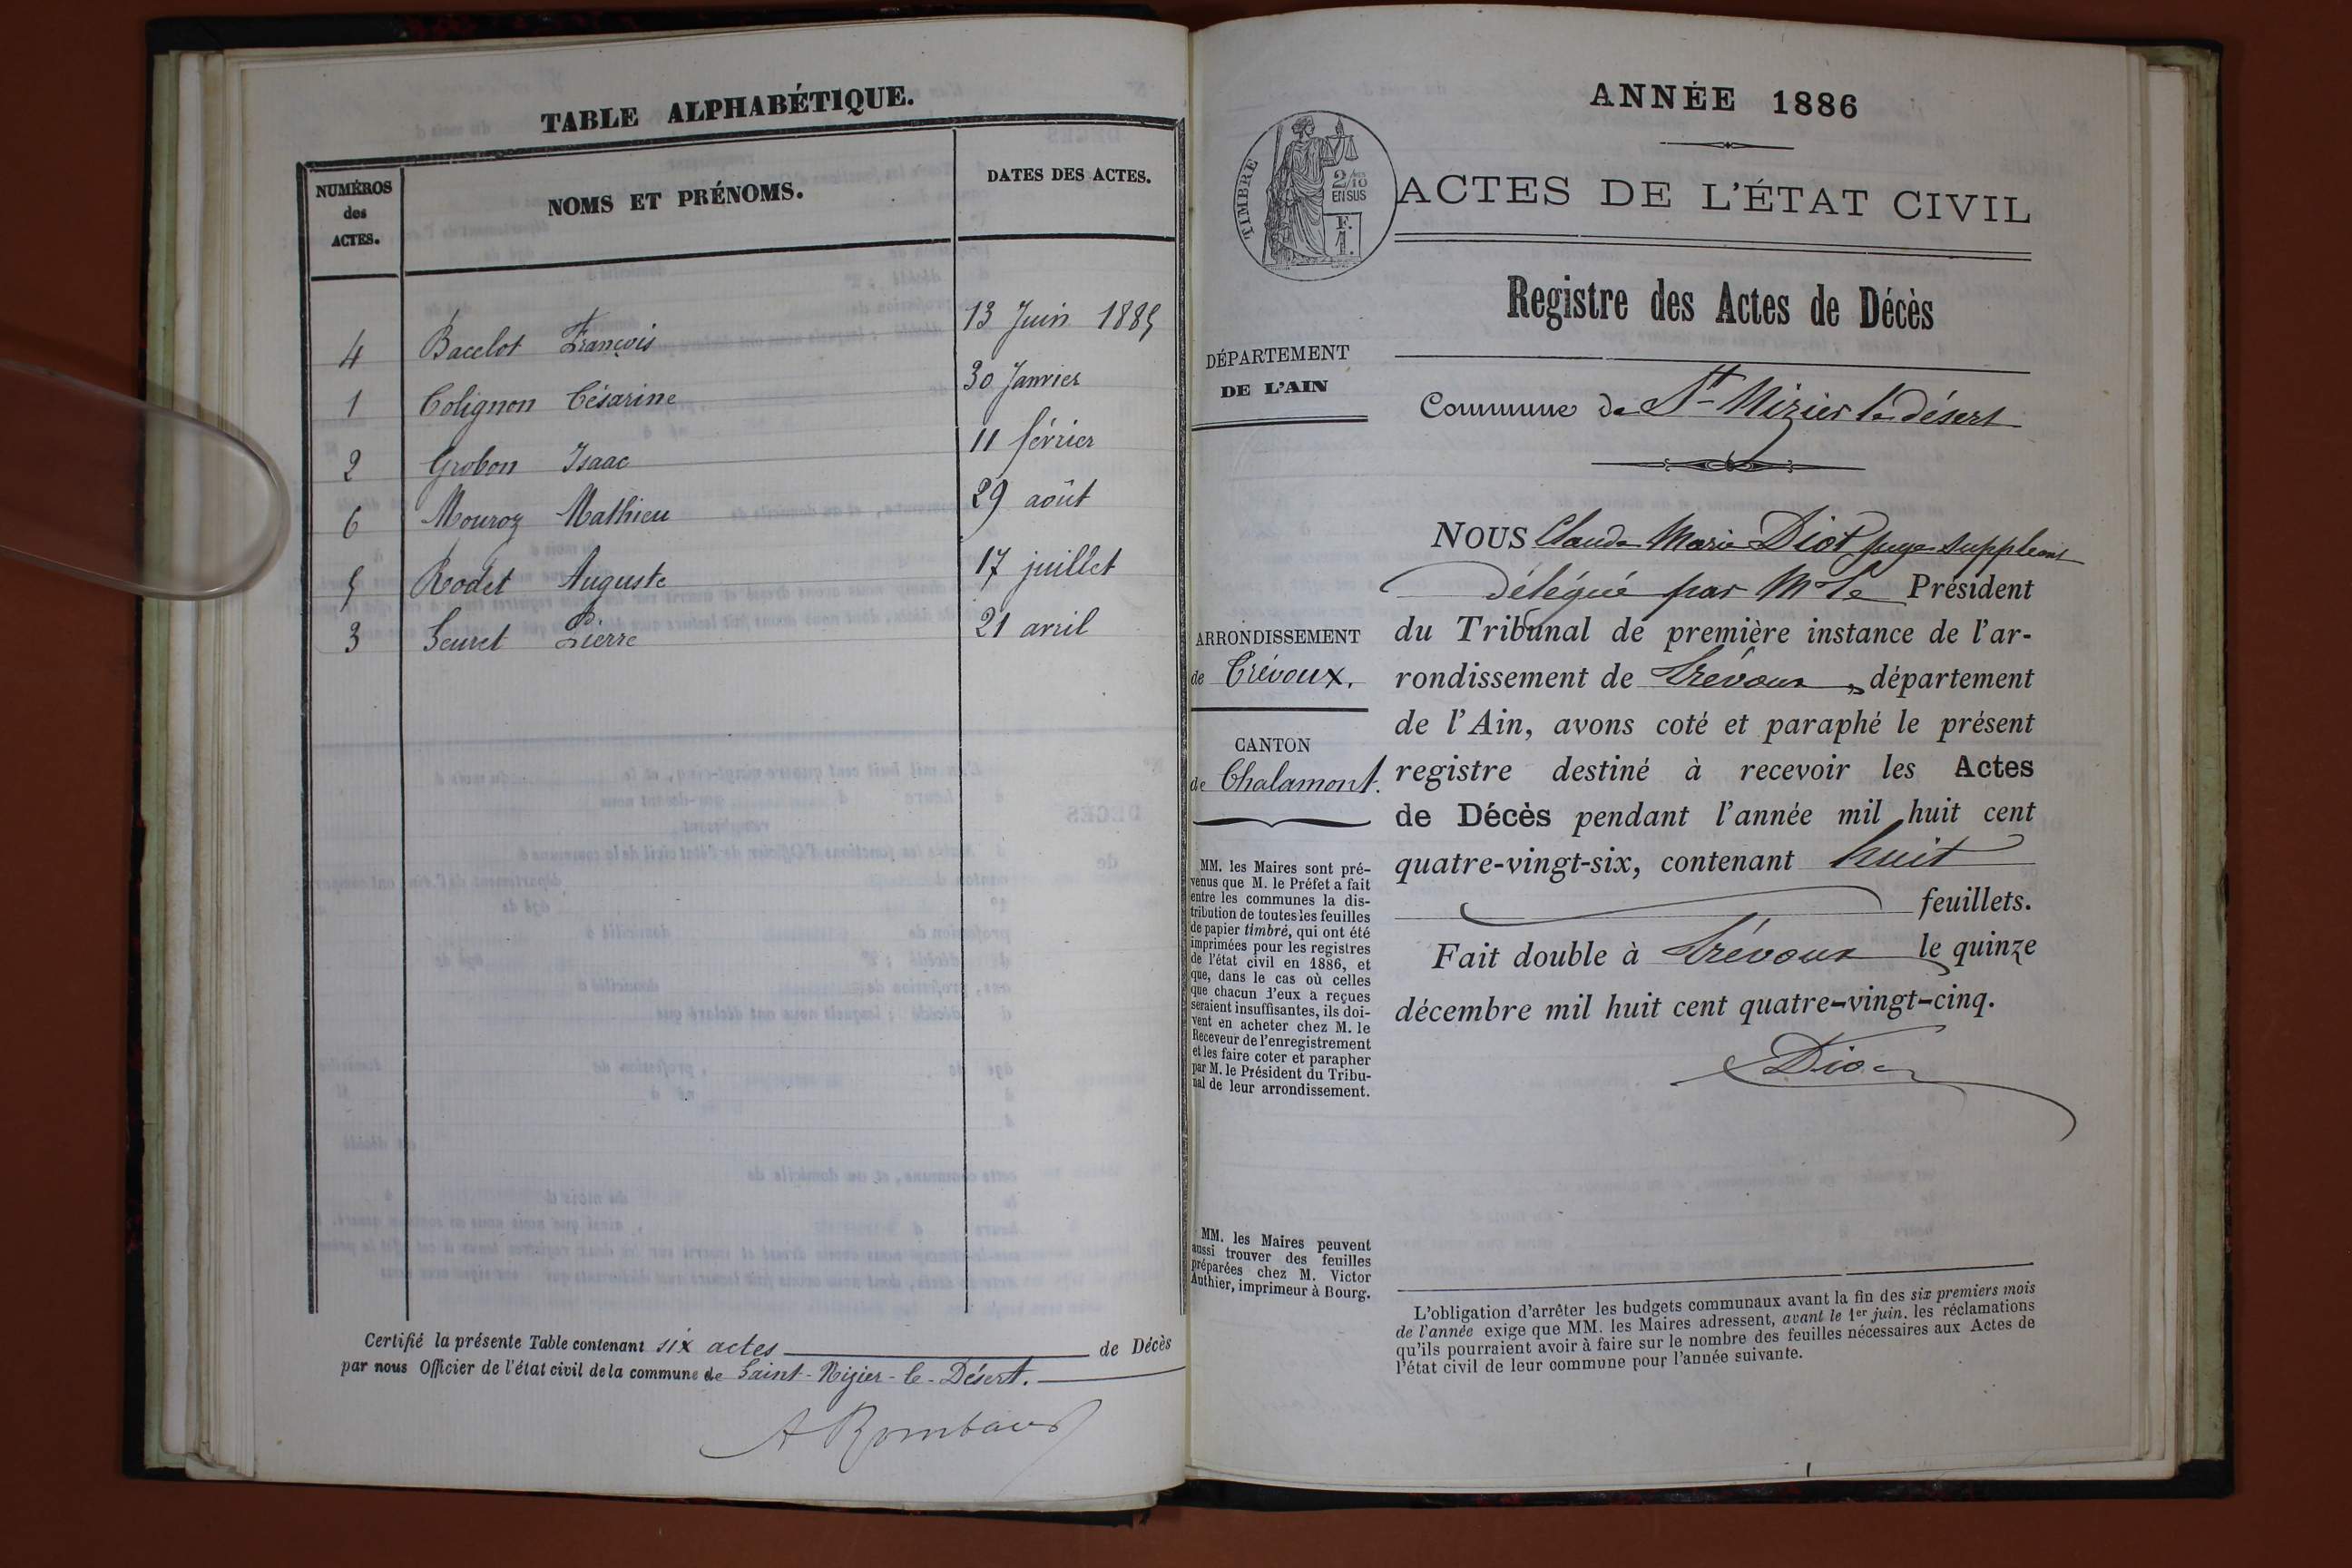 TABLE ALPHABÉTIQUE.
NUMÉROS
des
ACTES.
NOMS ET PRÉNOMS.
DATES DES ACTES.
4 Bacelot François 13 Juin 1885
1 Colignon Césarine 30 Janvier
2 Grobon Isaac 11 février
6 Mouroz Mathieu 29 août
5 Rodet Auguste 17 juillet
3 Seuret Pierre 21 avril
Certifié la présente Table contenant six actes de Décès
par nous Officier de l'état civil de la commune de Saint-Nizier-le-Désert.
ANNÉE 1886
TIMBRE
2/10
EN SUS
F.
1.
ACTES DE L'ÉTAT CIVIL
Registre des Actes de Décès
DÉPARTEMENT
DE L'AIN
Commune de St Nizier le désert
ARRONDISSEMENT
de Trévoux.
CANTON
de Chalamont.
MM. les Maires sont pré-
venus que M. le Préfet a fait
entre les communes la dis-
tribution de toutes les feuilles
de papier timbré, qui ont été
imprimées pour les registres
de l'état civil en 1886, et
que, dans le cas où celles
que chacun d'eux a reçues
seraient insuffisantes, ils doi-
vent en acheter chez M. le
Receveur de l'enregistrement
et les faire coter et parapher
par M. le Président du Tribu-
nal de leur arrondissement.
MM. les Maires peuvent
aussi trouver des feuilles
préparées chez M. Victor
Authier, imprimeur à Bourg.
NOUS Claude Marie Diot juge suppléant
délégué par Mr le Président
du Tribunal de première instance de l'ar-
rondissement de Trévoux, département
de l'Ain, avons coté et paraphé le présent
registre destiné à recevoir les Actes
de Décès pendant l'année mil huit cent
quatre-vingt-six, contenant huit
feuillets.
Fait double à Trévoux le quinze
décembre mil huit cent quatre-vingt-cinq.
L'obligation d'arrêter les budgets communaux avant la fin des six premiers mois
de l'année exige que MM. les Maires adressent, avant le 1er juin, les réclamations
qu'ils pourraient avoir à faire sur le nombre des feuilles nécessaires aux Actes de
l'état civil de leur commune pour l'année suivante.